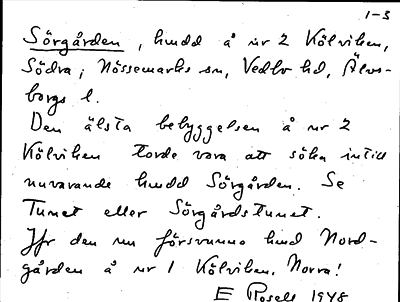 1-3
Sörgården, hmdd å nr 2 Kölviken,
Södra; Nössemarks sn, Vedbo hd, Älvs-
borgs l.
Den älsta bebyggelsen å nr 2
Kölviken torde vara att söka intill
nuvarande hmdd Sörgården. Se
Tunet eller Sörgårdstunet.
Jfr den nu försvunna hmd Nord-
gården å nr 1 Kölviken. Norra!
E Rosell 1948